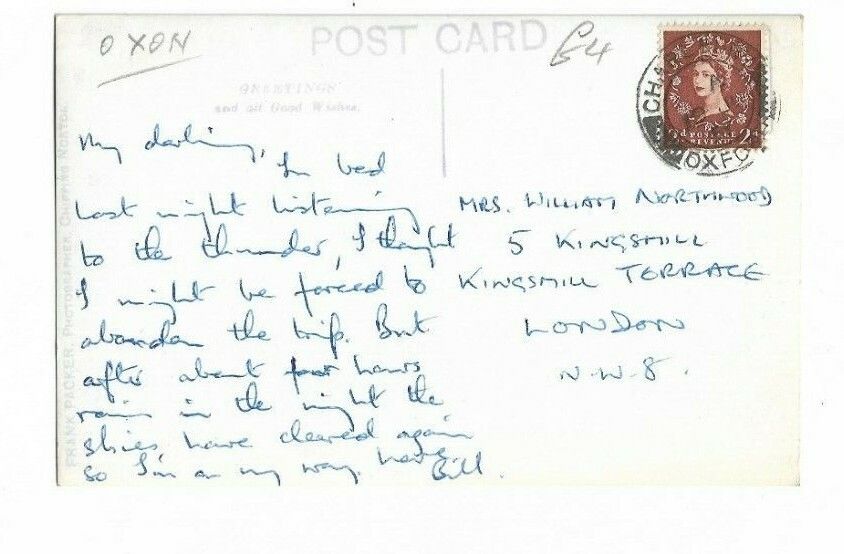 OXON
POST CARD
£4
GREETINGS
and all Good Wishes.
My darling,
In bed
last night listening
to the thunder, I thought
I might be forced to
abandon the trip. But
after about four hours
rain in the night the
skies have cleared again
so I'm on my way.
Bill.
MRS. WILLIAM NORTHWOOD
5 KINGSMILL
KINGSMILL TERRACE
LONDON
N.W.8.
FRANK PACKER, PHOTOGRAPHER, CHIPPING NORTON.
POSTAGE
REVENUE
2d
OXFO